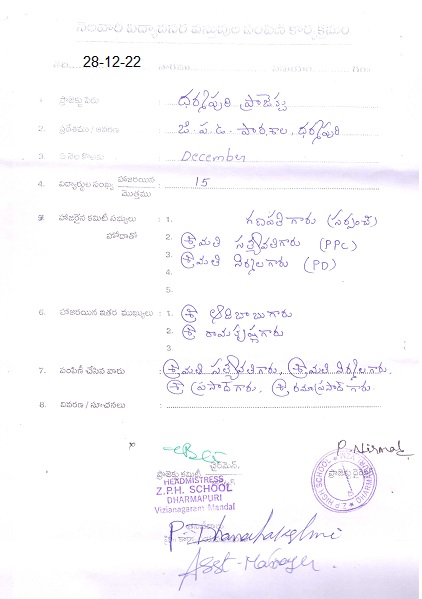 నెలవారీ విద్యావసర వస్తువుల పంపిణి కార్యక్రమం
28-12-22
1. ప్రాజెక్టు పేరు ధర్మపురి ప్రాజెక్టు
2. ప్రదేశము / ఆవరణ జి.ప.ఉ. పాఠశాల, ధర్మపురి
3. ఏ నెల కొరకు December
4. విద్యార్థుల సంఖ్య హాజరయిన 15
మొత్తము
5. హాజరైన కమిటీ సభ్యులు 1. గణపతి గారు (సర్పంచ్)
హోదాతో 2. శ్రీమతి సత్యవతిగారు (PPC)
3. శ్రీమతి నిర్మలగారు (PD)
4.
5.
6. హాజరయిన ఇతర ముఖ్యులు : 1. శ్రీ హరిబాబు గారు
2. శ్రీ రామకృష్ణగారు
3.
7. పంపిణీ చేసిన వారు : శ్రీమతి సత్యవతిగారు, శ్రీమతి నిర్మలగారు,
శ్రీ ప్రసాద్ గారు, శ్రీ రమాప్రసాద్ గారు.
8. వివరణ / సూచనలు
P. Nirmal
ప్రాజెక్టు కమిటీ చైర్‌మెన్.
ప్రాజెక్టు
HEADMISTRESS
Z.P.H. SCHOOL
DHARMAPURI
Vizianagaram Mandal
HIGH SCHOOL DHARMA
P. Dhanalakshmi
Asst-Manager.